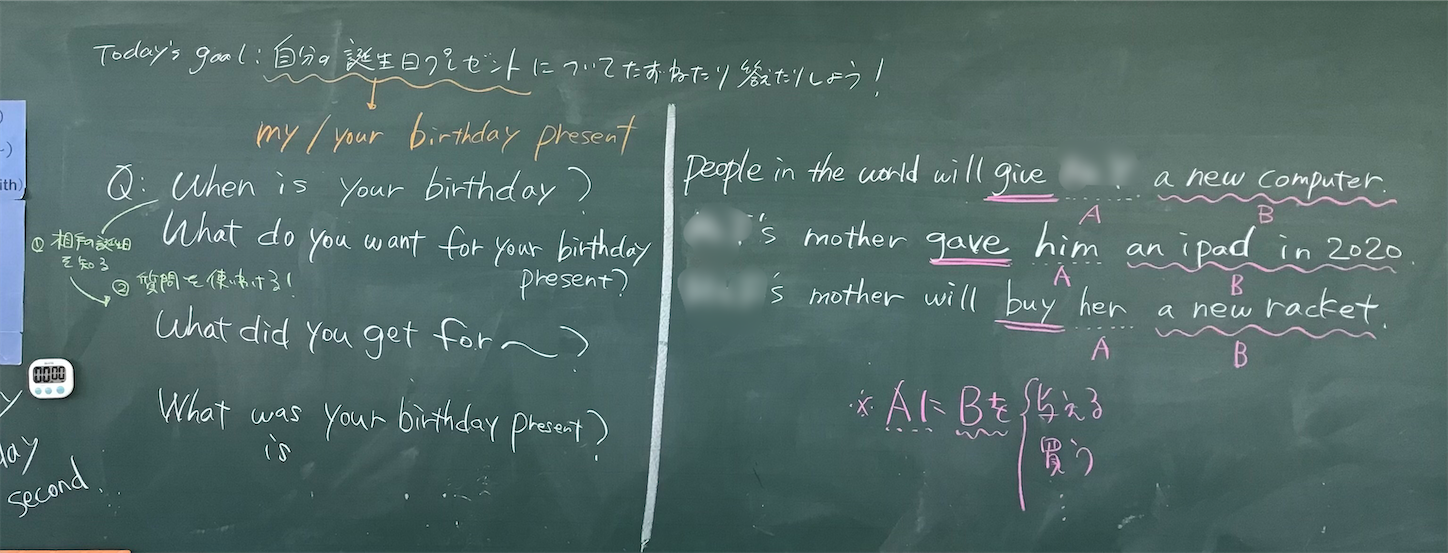 Today's goal: 自分の誕生日プレゼントについてたずねたり答えたりしよう!
my/your birthday present
Q: When is your birthday?
① 相手の誕生日
を知る
What do you want for your birthday
present?
② 質問を使いわける!
What did you get for ～?
What was your birthday present?
is
people in the world will give a new computer.
A B
's mother gave him an ipad in 2020.
A B
's mother will buy her a new racket.
A B
※ AにBを { 与える
買う
ith)
day
second
00:00